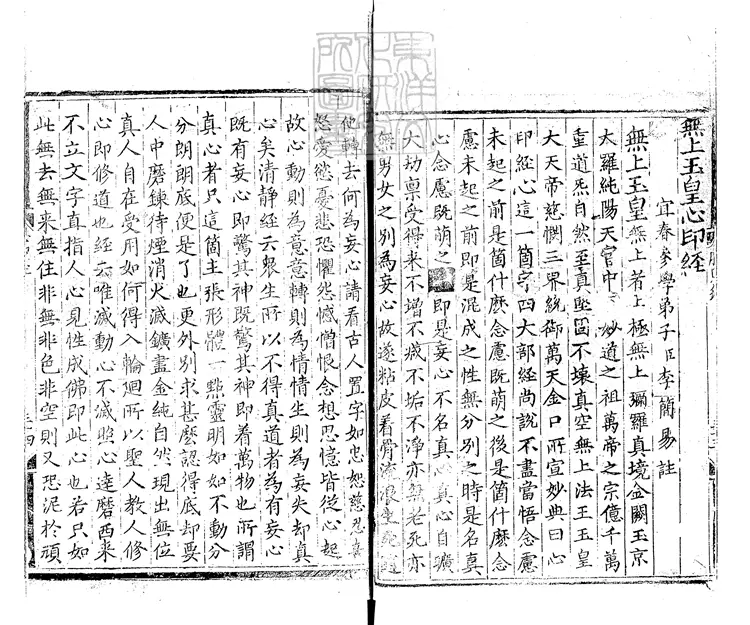 無上玉皇心印経
宜春參學弟子臣李簡易註
無上玉皇無上者上極無上彌羅真境金闕玉京
大羅純陽天宮中 妙道之祖萬帝之宗億千萬
重道炁自然至真 不壞真空無上法王玉皇
大天帝慈憫三界統御萬天金口所宣妙典曰心
印經心這一箇字四大部經尚說不盡當悟念慮
未起之前是箇什麽念慮既萌之後是箇什麽念
慮未起之前即是混成之性無分別之時是名真
心念慮既萌之 即是妄心不名真心真心自曠
大劫禀受得来不增不减不垢不淨亦無老死亦
無男女之别為妄心故遂粘皮着骨流浪生死
他轉去何為妄心請看古人置字如忠恕慈忍喜
怒愛慾憂悲恐懼怨憾憎恨念想思憶皆從心起
故心動則為意意轉則為情情生則為妄失却真
心矣清静經云衆生所以不得真道者為有妄心
既有妄心即驚其神既驚其神即着萬物也所謂
真心者只這箇主張形體一點靈明如如不動分
分朗朗底便是了也更外别求甚麽認得底却要
人中磨錬待煙消火滅鑛盡金純自然現出無位
真人自在受用如何得入輪廻所以聖人教人修
心即修道也經云唯滅動心不滅照心達磨西来
不立文字直指人心見性成佛即此心也若只如
此無去無来無住非無非色非空則又恐泥於頑